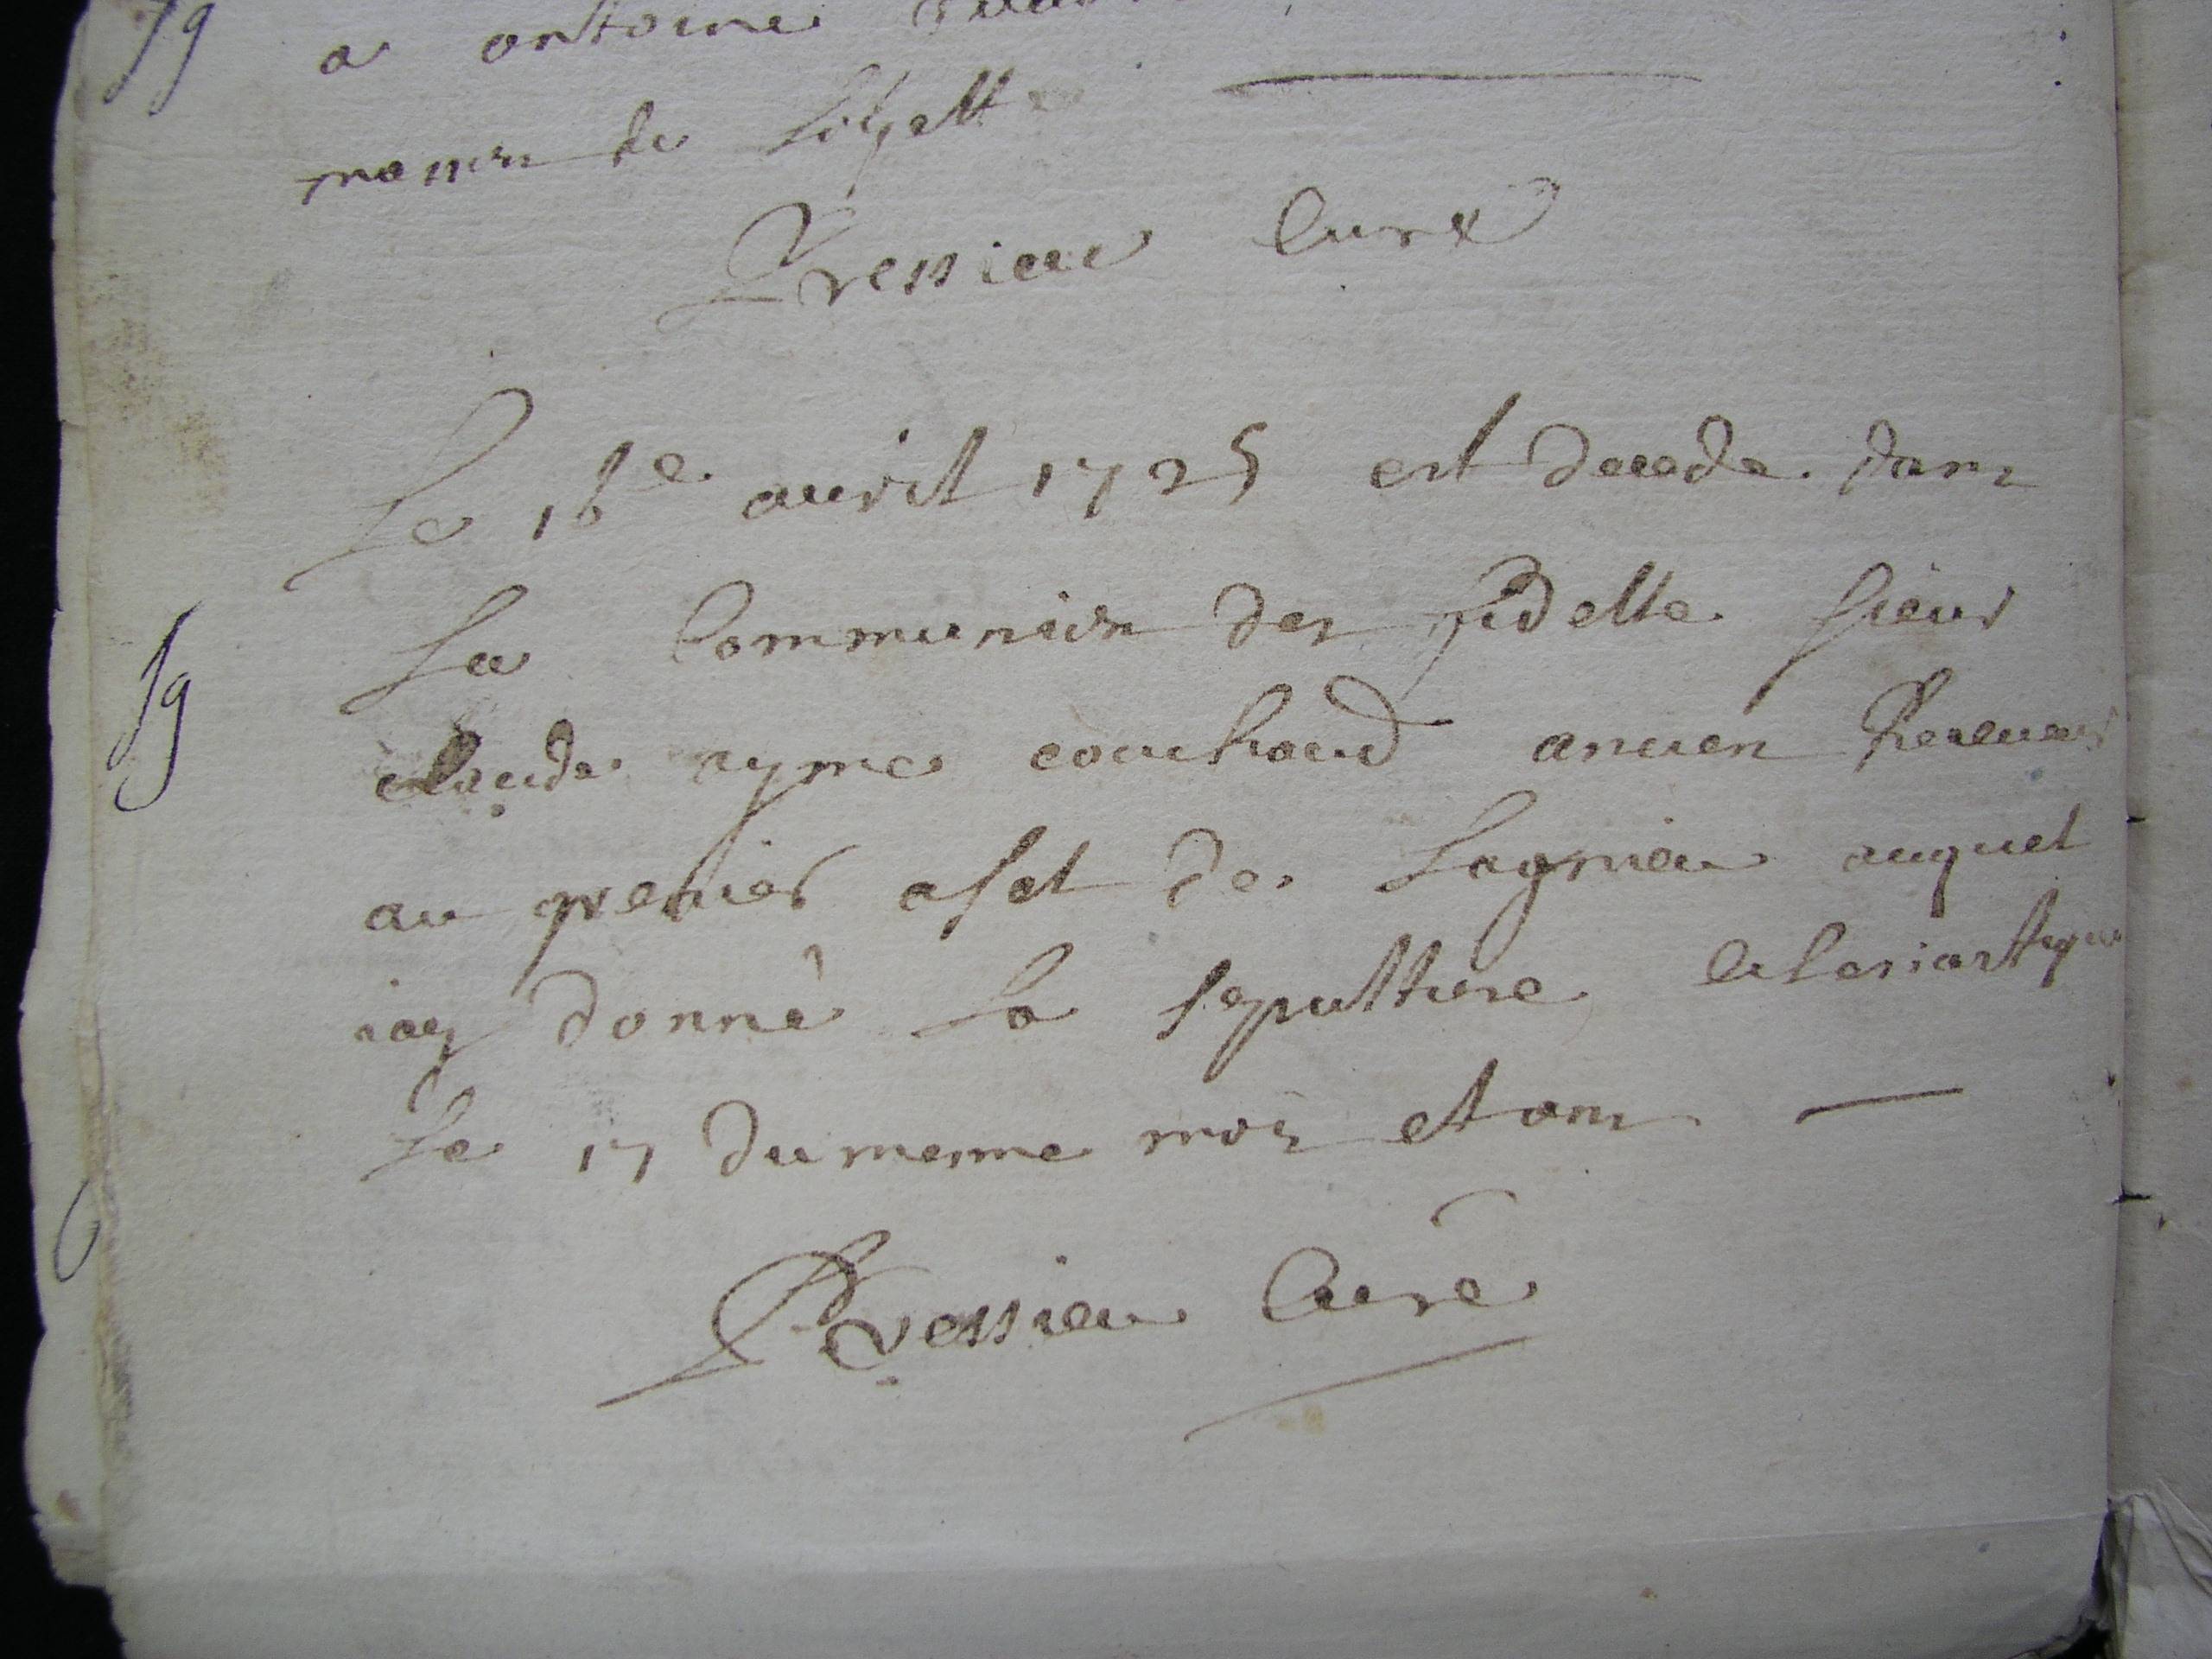 a antoine
de
Pressieu Curé
Le 16e avril 1725 est decede dans
La Communion des fidelle sieur
claude ayme couchaud ancien Receveur
au grenier a sel de Lagnieu auquel
iay donné la sepulture eclesiastique
Le 17 du mesme mois et an
Pressieu Curé